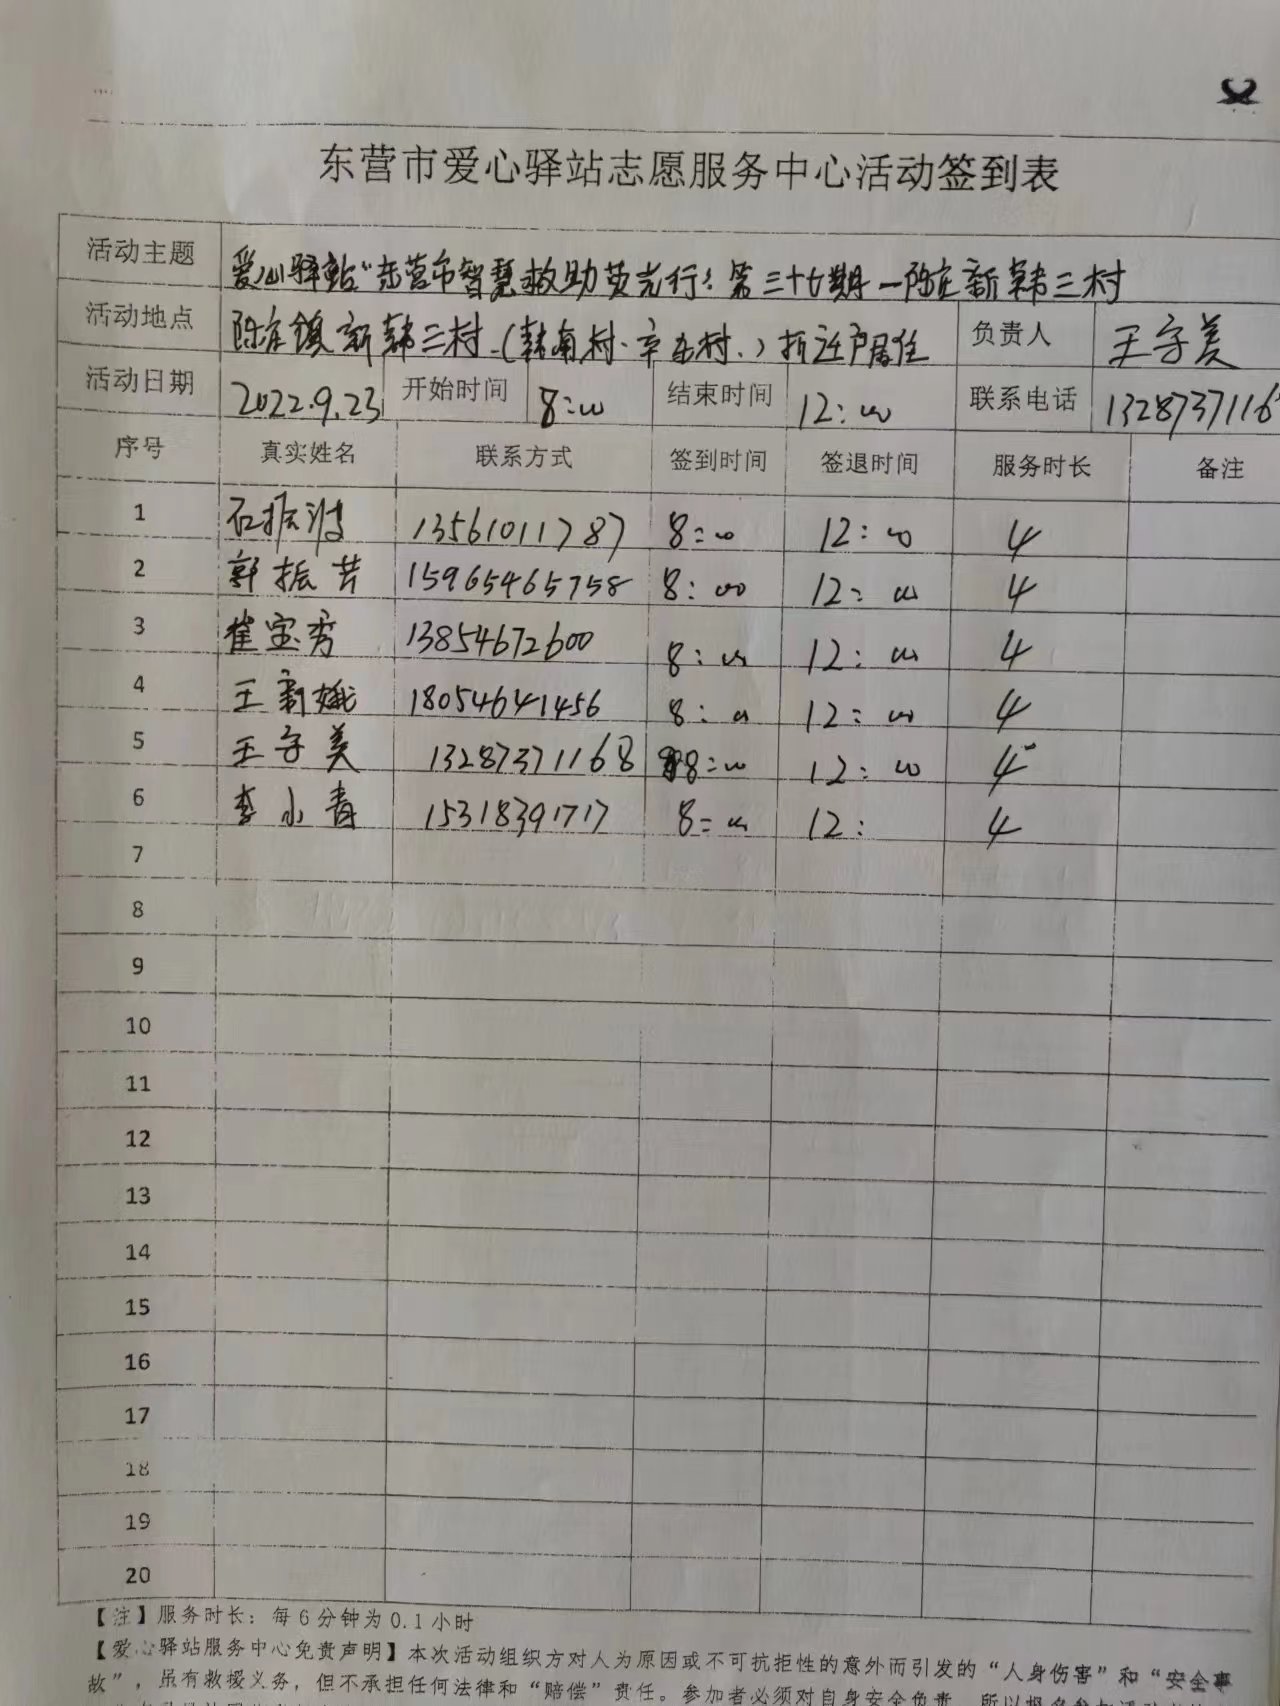 东营市爱心驿站志愿服务中心活动签到表
活动主题 爱心驿站"东营市智慧救助荧光行:第三十七期—陈庄新韩三村
活动地点 陈庄镇新韩三村.(韩南村.辛庄村.)拆迁户居住 负责人 王守美
活动日期 2022.9.23 开始时间 8:00 结束时间 12:00 联系电话 1328737116
序号 真实姓名 联系方式 签到时间 签退时间 服务时长 备注
1 石振波 13561011787 8:00 12:00 4
2 郭振芸 15965465758 8:00 12:00 4
3 崔宝秀 13854672600 8:00 12:00 4
4 王新娥 18054641456 8:00 12:00 4
5 王守美 13287371168 8:00 12:00 4
6 李小青 15318391717 8:00 12: 4
7
8
9
10
11
12
13
14
15
16
17
18
19
20
【注】服务时长：每6分钟为0.1小时
【爱心驿站服务中心免责声明】本次活动组织方对人为原因或不可抗拒性的意外而引发的“人身伤害”和“安全事
故”，虽有救援义务，但不承担任何法律和“赔偿”责任。参加者必须对自身安全负责，所以报名参